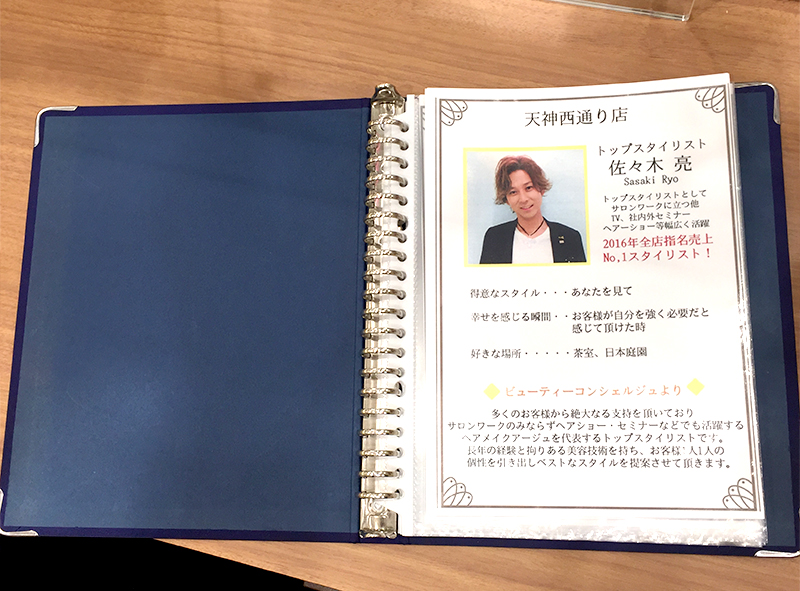 天神西通り店
トップスタイリスト
佐々木 亮
Sasaki Ryo
トップスタイリストとして
サロンワークに立つ他
TV、社内外セミナー
ヘアーショー等幅広く活躍
2016年全店指名売上
No,1スタイリスト！
得意なスタイル・・・あなたを見て
幸せを感じる瞬間・・お客様が自分を強く必要だと
感じて頂けた時
好きな場所・・・・・茶室、日本庭園
ビューティーコンシェルジュより
多くのお客様から絶大なる支持を頂いており
サロンワークのみならずヘアショー・セミナーなどでも活躍する
ヘアメイクアージュを代表するトップスタイリストです。
長年の経験と拘りある美容技術を持ち、お客様1人1人の
個性を引き出しベストなスタイルを提案させて頂きます。